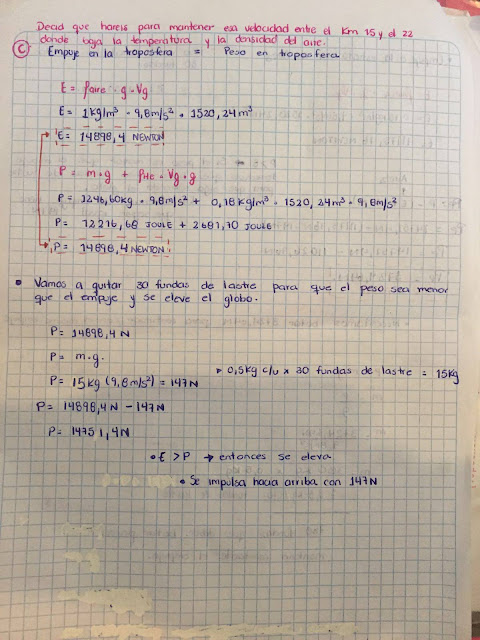 Decid que hareis para mantener esa velocidad entre el Km 15 y el 22
donde baja la temperatura y la densidad del aire.
C Empuje en la troposfera = Peso en troposfera
E = ρaire · g · Vg
E = 1 kg/m³ · 9,8 m/s² · 1520,24 m³
E = 14898,4 NEWTON
P = m·g + ρHe · Vg · g
P = 1246,60 kg · 9,8 m/s² + 0,18 kg/m³ · 1520,24 m³ · 9,8 m/s²
P = 12216,68 JOULE + 2681,70 JOULE
P = 14898,4 NEWTON
• Vamos a quitar 30 fundas de lastre para que el peso sea menor
que el empuje y se eleve el globo.
P = 14898,4 N
P = m·g.
→ 0,5kg c/u x 30 fundas de lastre = 15kg
P = 15 kg (9,8 m/s²) = 147 N
P = 14898,4 N - 147 N
P = 14751,4 N
• E > P → entonces se eleva
• Se impulsa hacia arriba con 147 N